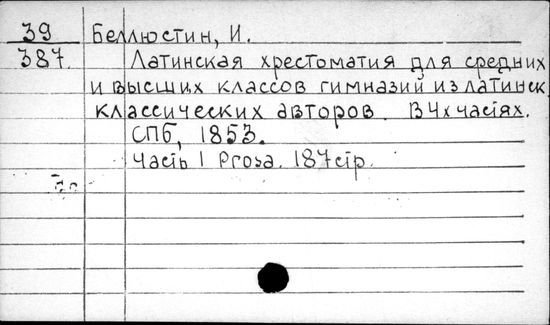 39 Беллюстин, И.
387. Латинская хрестоматия для средних
и высших классов гимназий из латинск.
классических авторов. В 4х частях.
СПб, 1853.
Часть 1 Proza. 187 стр.